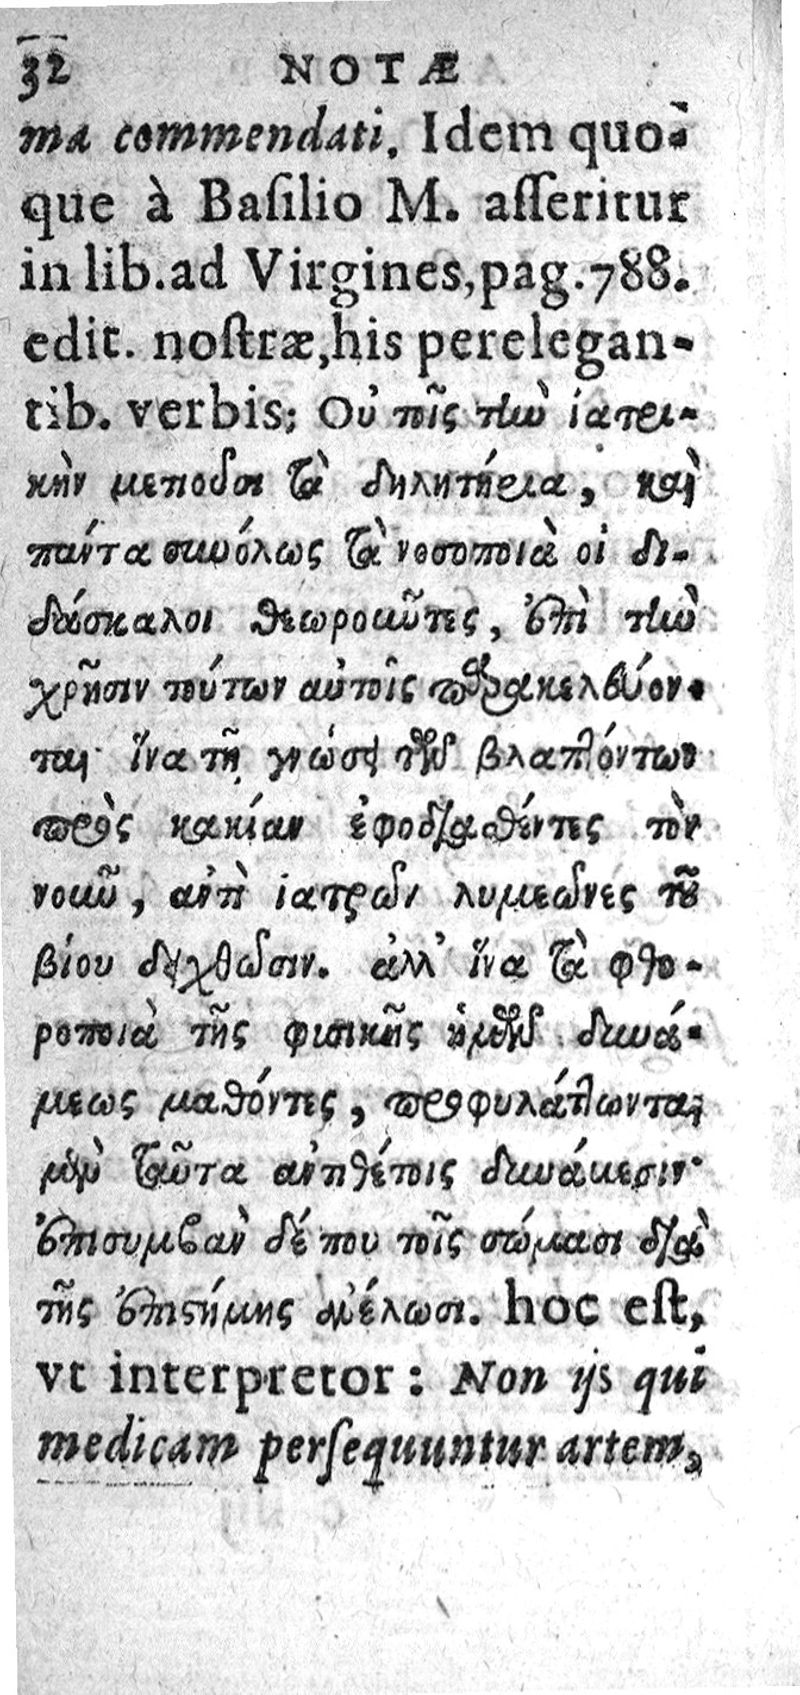 32 NOTÆ
ma commendati. Idem quo-
que à Baſilio M. aſſeritur
in lib. ad Virgines, pag. 788.
edit. noſtræ, his perelegan-
tib. verbis; Οὐ τοῖς τὴν ἰατρι-
κὴν μετιοῦσι τὰ δηλητήρια, καὶ
πάντα συνόλως τὰ νοσοποιὰ οἱ δι-
δάσκαλοι θεωροῦντες, ἐπὶ τὴν
χρῆσιν τούτων αὐτοῖς παρακελεύον-
ται· ἵνα τῇ γνώσει τῶν βλαπτόντων
πρὸς κακίαν ἐφοδιασθέντες τὸν
νοῦν, ἀντὶ ἰατρῶν λυμεῶνες τοῦ
βίου δειχθῶσιν. ἀλλ' ἵνα τὰ φθο-
ροποιὰ τῆς φισικῆς ἡμῶν δυνά-
μεως μαθόντες, προφυλάττωνται
μὲν ταῦτα ἀντιθέτοις δυνάμεσιν·
ἐπισυμβὰν δέ που τοῖς σώμασι διὰ
τῆς ἐπιστήμης ἀνέλωσι. hoc eſt,
vt interpretor: Non ijs qui
medicam perſequuntur artem,